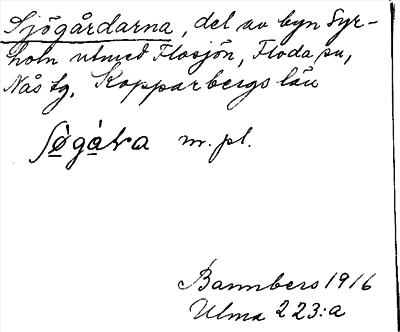 Sjögårdarna, del av byn Syr-
holn utmed Flosjön, Floda sn,
Nås tg, Kopparbergs län
m. pl.
Bannbers 1916
Ulma 223:a